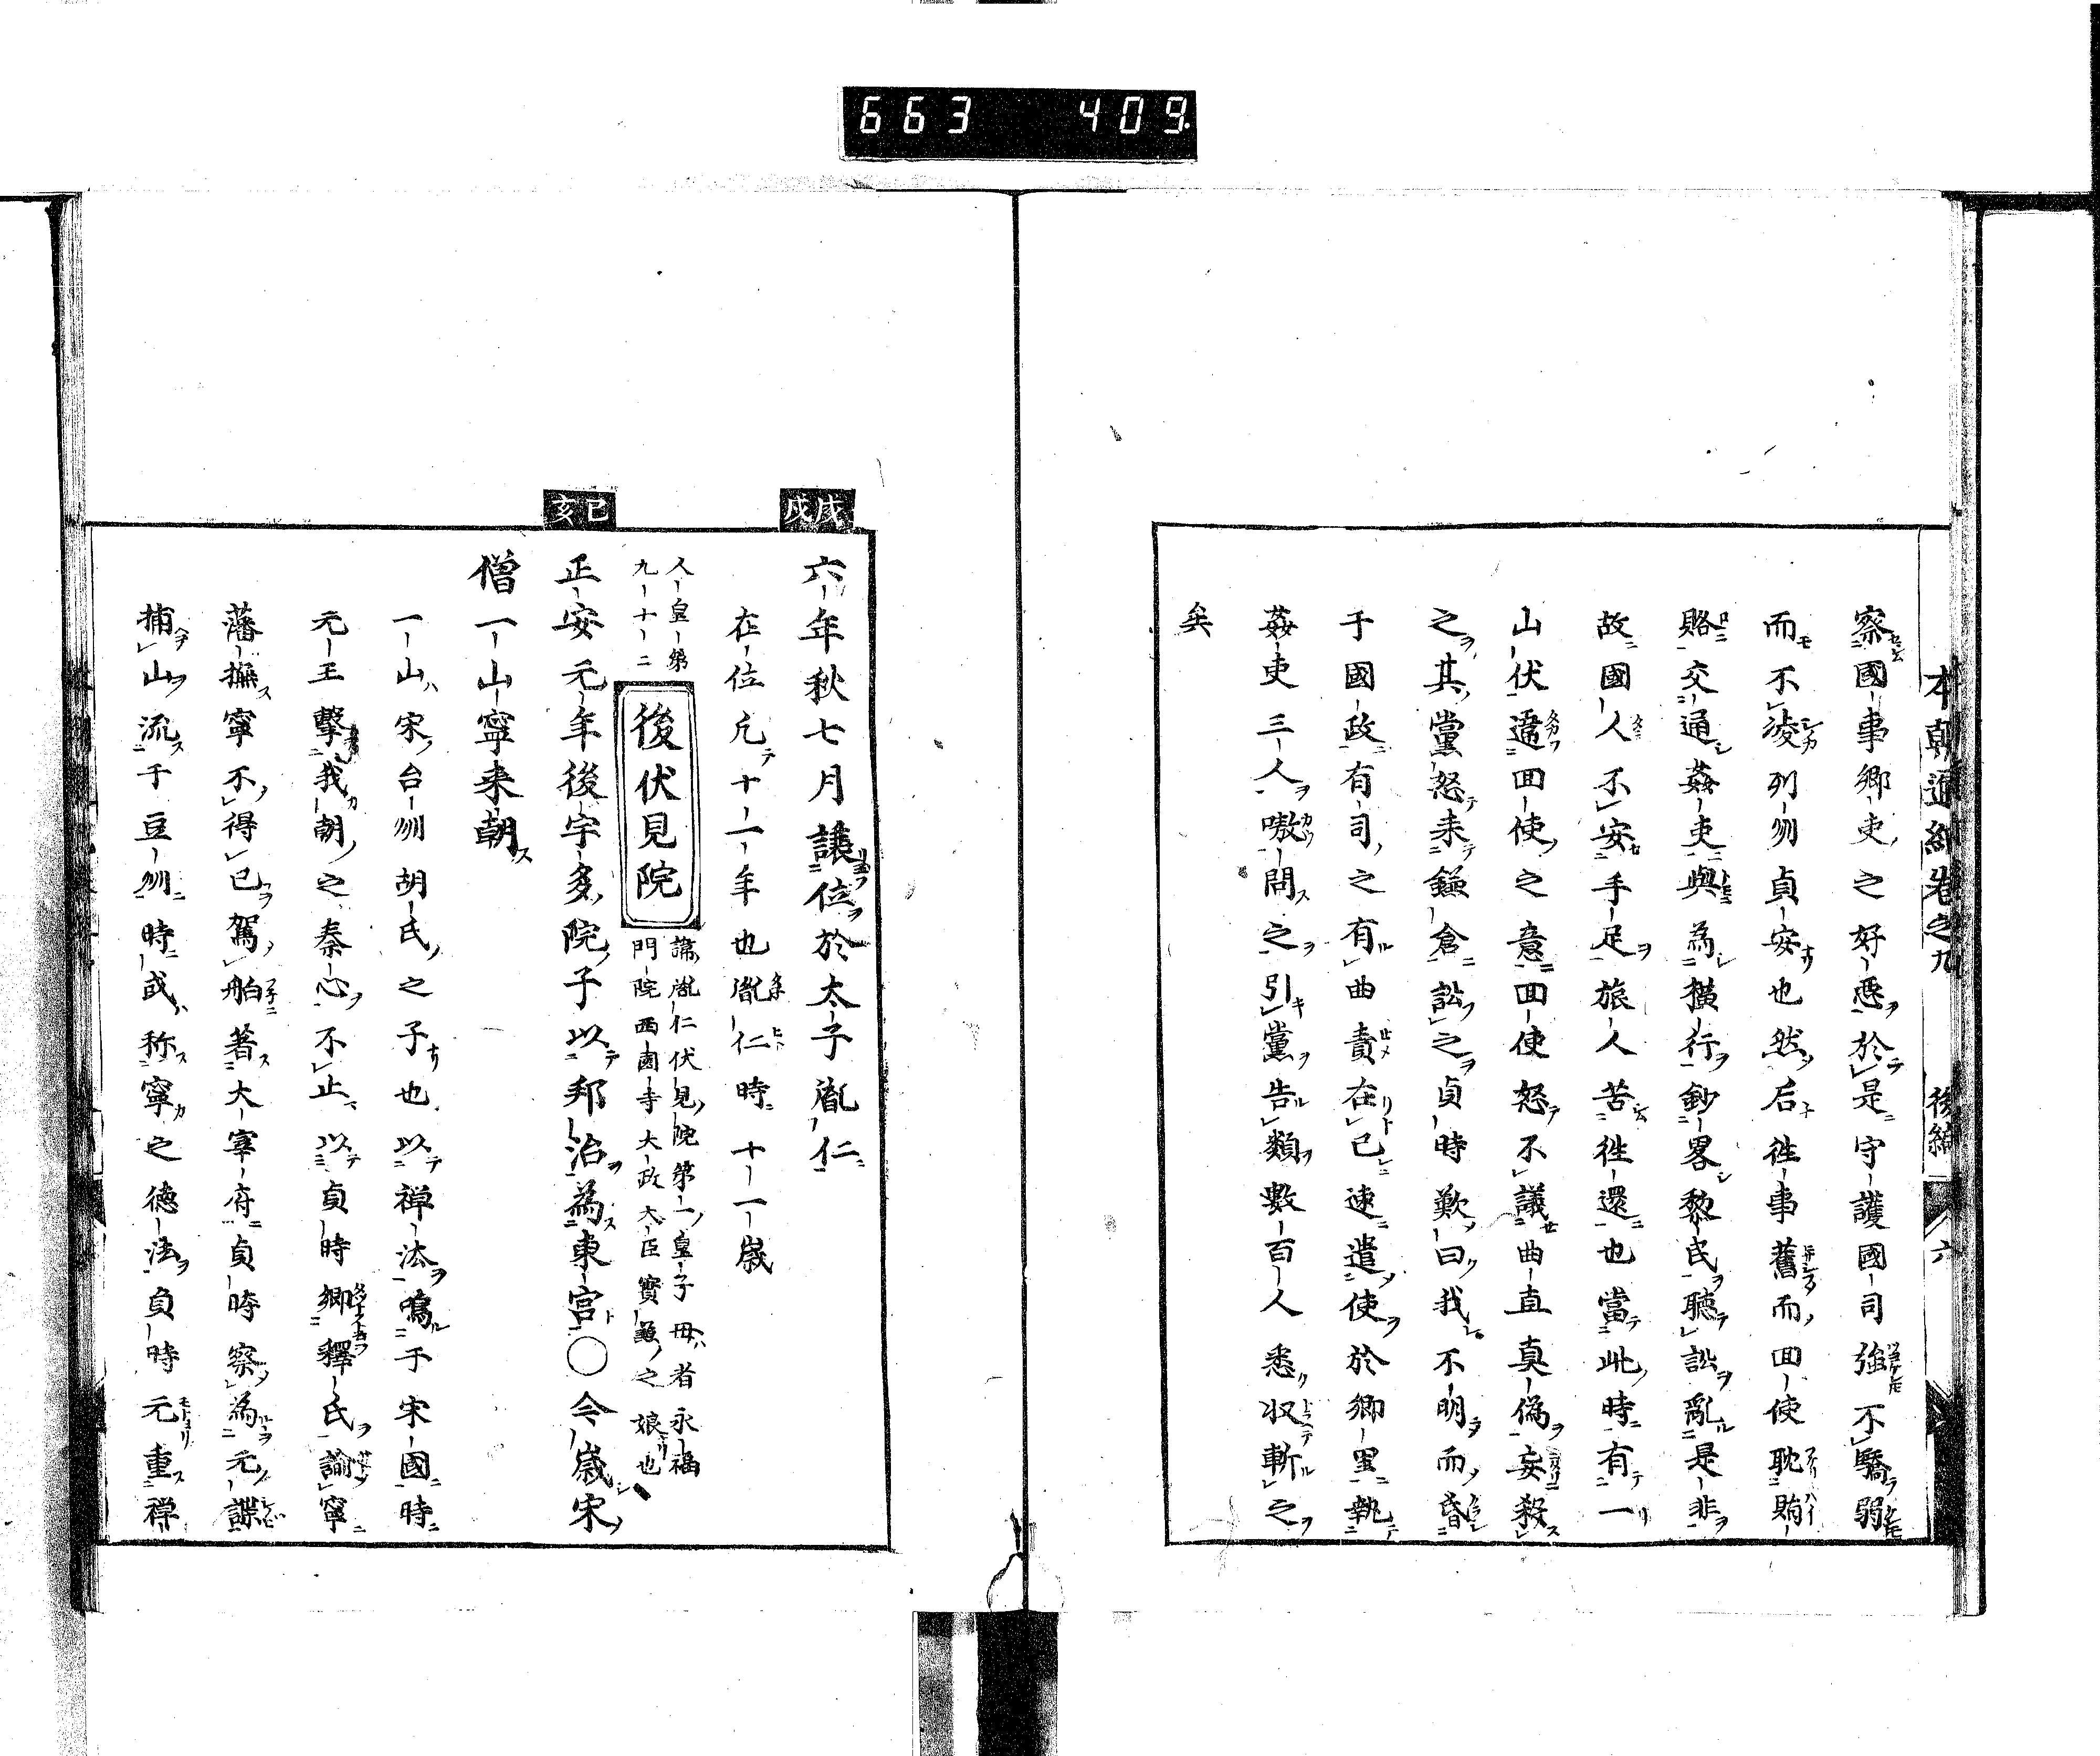 663 409
本朝通紀卷之九 後編 六
察國事鄉吏之好惡於是守護國司強不驕弱
而不凌列州貞安也然后徃事舊而囬使耽賄
賂交通姦吏與為横行鈔畧黎民聽訟亂是非
故國人不安手足旅人苦徃還也當此時有一
山伏遁囬使之意囬使怒不議曲直真偽妄殺
之其黨怒来鎌倉訟之貞時歎曰我不明而昏
于國政有司之有曲責在已速遣使於鄉里執
姦吏三人嗷問之引黨告類數百人悉収斬之
矣
戊戌
六年秋七月讓位於太子胤仁
在位凡十一年也胤仁時十一歳
人皇第九十二
後伏見院
諱胤仁伏見院第一皇子母者永福門院西園寺大政大臣實兼之娘也
己亥
正安元年後宇多院子以邦治為東宮〇今歳宋
僧一山寧来朝
一山宋台州胡氏之子也以禅法鳴于宋國時
元王擊我朝之秦心不止以貞時卿釋氏諭寧
藩撫寧不得已駕舶著大宰府貞時察為元諜
捕山流于豆州時或称寧之德法貞時元重禅